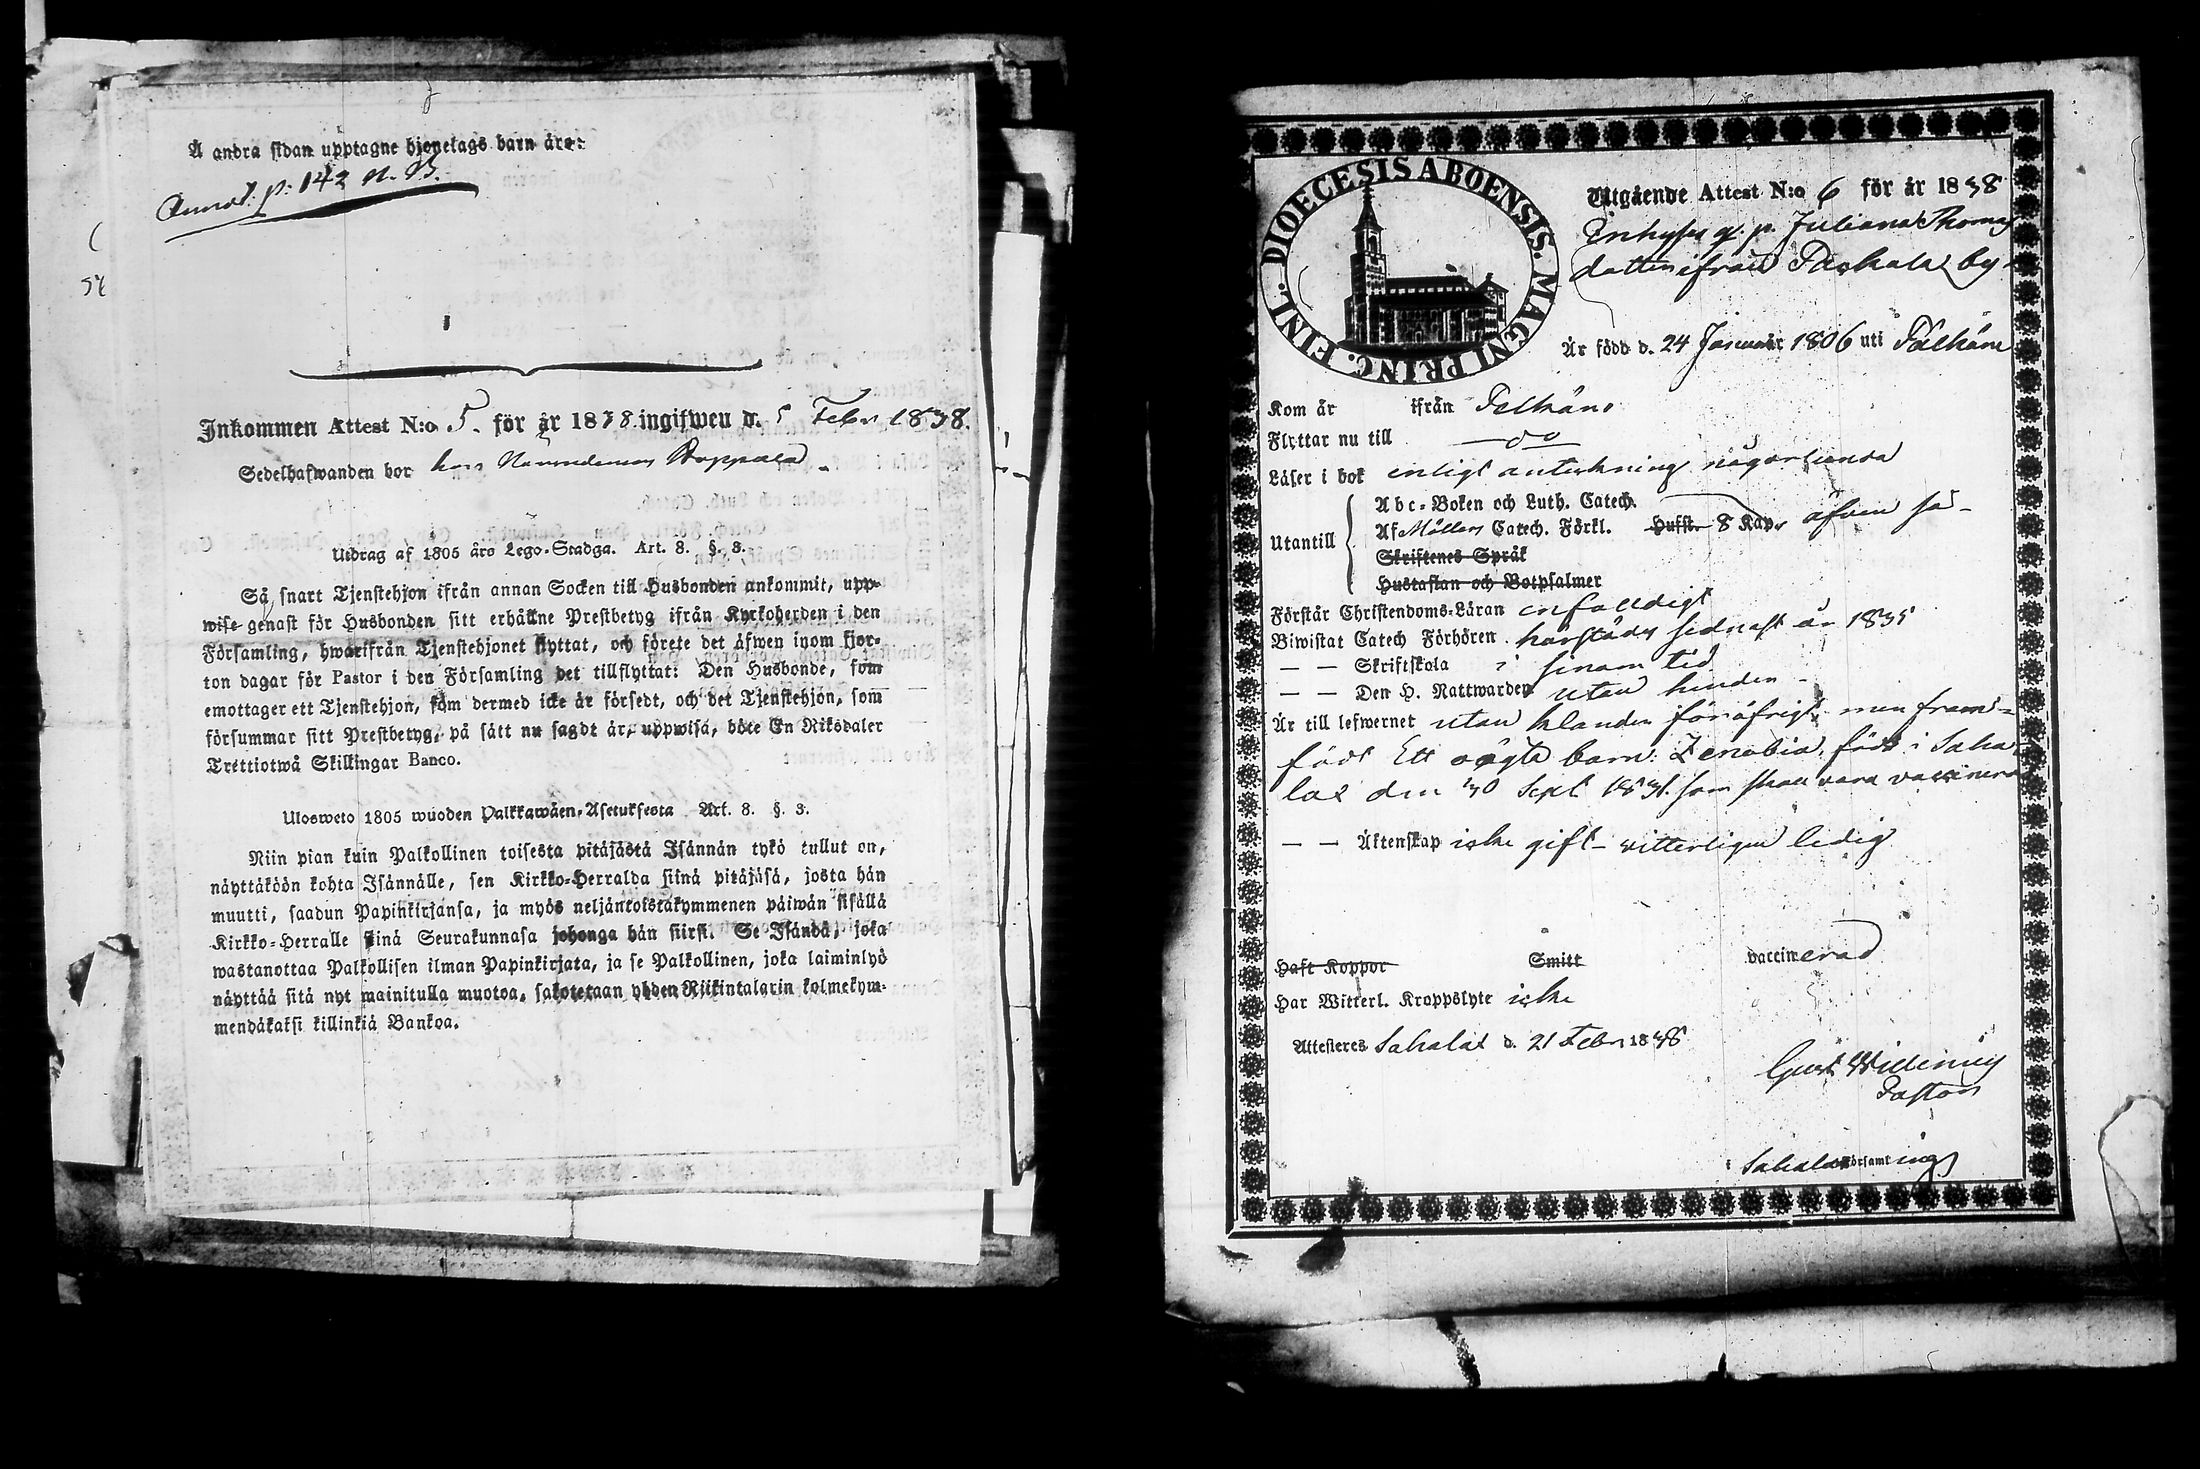 Å andra sidan upptagne hjonelags barn äro:
Annot. p: 142 N. B.
54
Inkommen Attest N:o 5. för år 1838. ingifwen d. 5 Febr 1838.
Sedelhafwanden bor hos
Utdrag af 1805 års Lego-Stadga. Art. 8. §. 3.
Så snart Tjenstehjon ifrån annan Socken till Husbonden ankommit, upp-
wise genast för Husbonden sitt erhållne Prestbetyg ifrån Kyrkoherden i den
Församling, hwarifrån Tjenstehjonet flyttat, och förete det äfwen inom fjor-
ton dagar för Pastor i den Församling det tillflyttat: Den Husbonde, som
emottager ett Tjenstehjon, som dermed icke är försedt, och det Tjenstehjon, som
försummar sitt Prestbetyg, på sätt nu sagdt är, uppwisa, böte En Riksdaler
Trettiotwå Skillingar Banco.
Ulosweto 1805 wuoden Palkkawäen-Asetuksesta Art. 8. §. 3.
Niin pian kuin Palkollinen toisesta pitäjästä Isännän tykö tullut on,
näyttäköön kohta Isännälle, sen Kirkko-Herralda siinä pitäjäsä, josta hän
muutti, saadun Papinkirjansa, ja myös neljäntoistakymmenen päiwän sisällä
Kirkko-Herralle siinä Seurakunnasa johonga hän siirsi. Se Isändä, joka
wastanottaa Palkollisen ilman Papinkirjata, ja se Palkollinen, joka laiminlyö
näyttää sitä nyt mainitulla muotoa, sakotetaan yhden Riikintalarin kolmekym-
mendäkaksi killinkiä Bankoa.
DIOECESIS ABOENSIS. MAGNI PRINC. FINL.
Utgående Attest N:o 6 för år 1838
Inhyses q. p. Juliana Thomas
dotter ifrån by
Är född d. 24 Januar 1806 uti Pälkäne
Kom år ifrån Pelkäne
Flyttar nu till — do —
Läser i bok enligt anteckning någorlunda
Utantill
Abc-Boken och Luth. Catech.
Af Möllers Catech. Förkl. Hufst. 8 Kap. äfven så –
Skriftenes Språk
Hustaflan och Botpsalmer
Förstår Christendoms-Läran enfaldigt
Biwistat Catech Förhören härstädes sednast år 1835
— — Skriftskola i sinom tid
— — Den H. Nattwarden utan hinder –
Är till lefwernet utan klander för öfrigt, men fram-
födt Ett oägta barn: Zenobia, född i Saha
lax den 30 Sept. 1831. som skall vara vaccinerad
— — Äktenskap icke gift – vitterligen ledig
Haft Koppor Smitt vaccinerad
Har Witterl. Kroppslyte icke
Attesteras Sahalax d. 21 Febr 1838
Gust. Widenius
Pastor
Sahalax församling